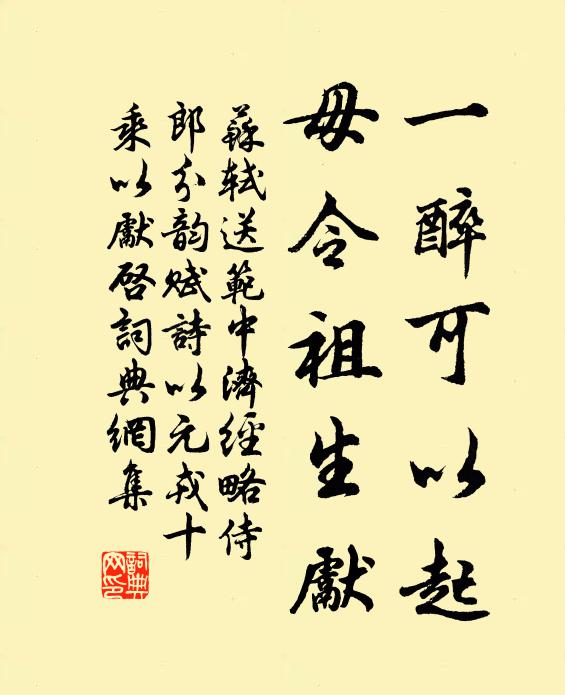 一醉可以起
毋令祖生獻
蘇軾送範中濟經略侍
郎分韵賦詩以元戎十
乘以獻啓詞典網集
詞典
网印